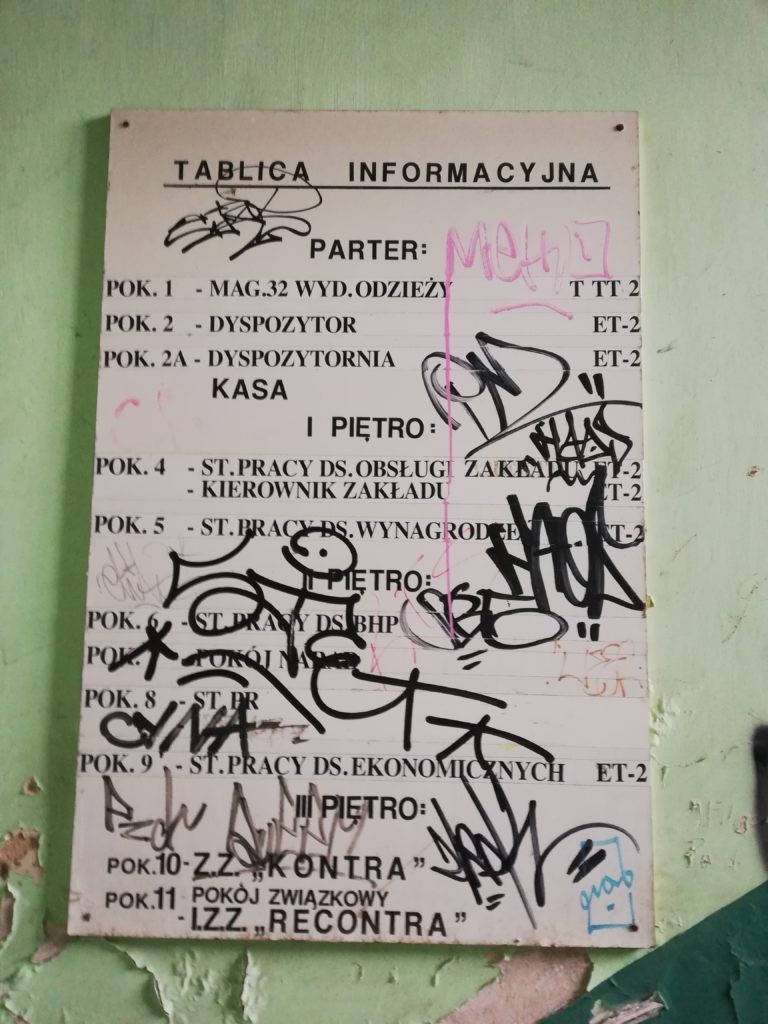 TABLICA INFORMACYJNA
PARTER:
POK. 1 - MAG.32 WYD.ODZIEŻY T TT 2
POK. 2 - DYSPOZYTOR ET-2
POK. 2A - DYSPOZYTORNIA ET-2
KASA
I PIĘTRO:
POK. 4 - ST.PRACY DS.OBSŁUGI ZAKŁADU ET-2
- KIEROWNIK ZAKŁADU ET-2
POK. 5 - ST.PRACY DS.WYNAGRODZE ET-2
II PIĘTRO:
POK. 6 - ST.PRACY DS.BHP
POK. - POKÓJ NARAD
POK. 8 - ST.PR
CYNA
POK. 9 - ST.PRACY DS.EKONOMICZNYCH ET-2
III PIĘTRO:
POK.10-Z.Z. „KONTRA”
POK.11 POKÓJ ZWIĄZKOWY
- I.Z.Z. „RECONTRA”